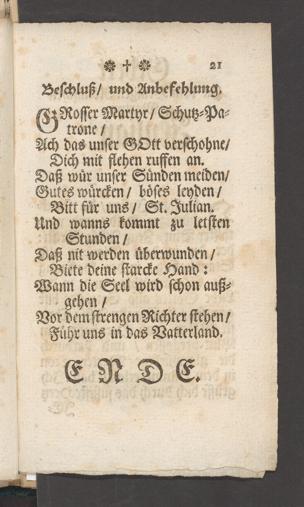 ❁ † ❁ 21
Beschluß/ und Anbefehlung.
GRosser Martyr/ Schutz-Pa-
trone/
Ach das unser GOtt verschohne/
Dich mit flehen ruffen an.
Daß wür unser Sünden meiden/
Gutes würcken/ böses leyden/
Bitt für uns/ St. Julian.
Und wanns kommt zu letsten
Stunden/
Daß nit werden überwunden/
Biete deine starcke Hand:
Wann die Seel wird schon auß-
gehen/
Vor dem strengen Richter stehen/
Führ uns in das Vatterland.
ENDE.